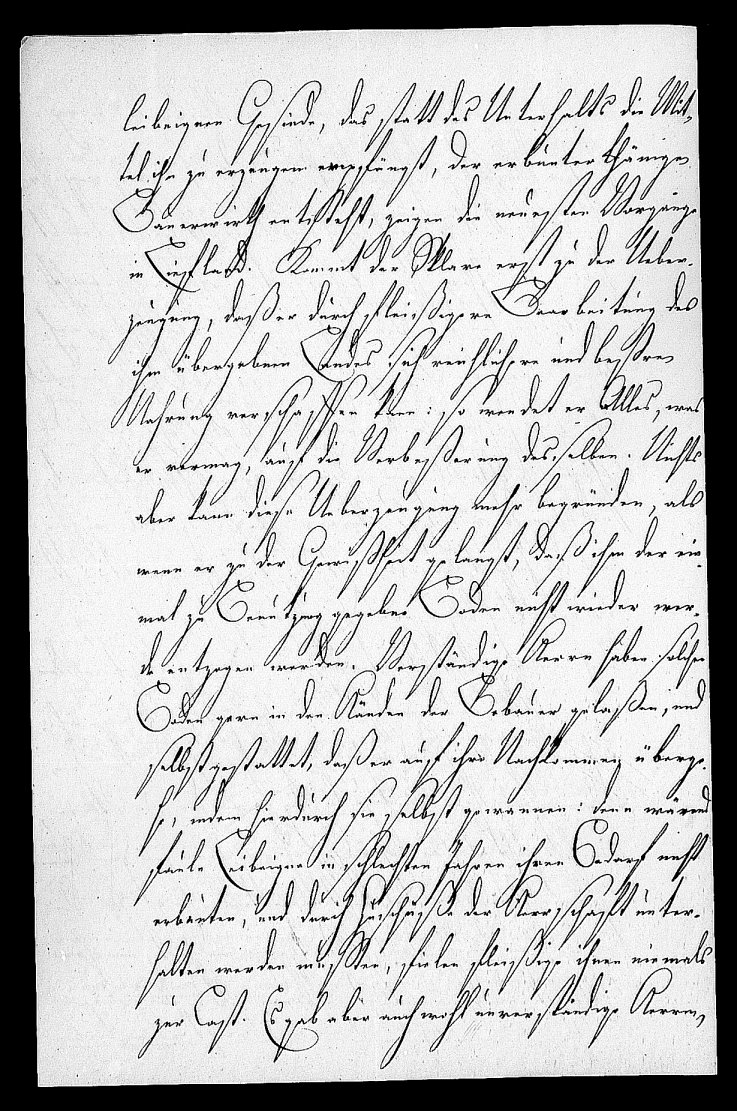 leibeignen Gesinde, das statt des Unterhalts die Mit-
tel ihn zu erzeugen empfängt, der erbunterthänige
Bauerwirth entsteht, zeigen die neuesten Vorgänge
in Liefland. Kommt der Sklave erst zu der Ueber-
zeugung, daß er durch fleißigere Bearbeitung des
ihm übergebnen Landes sich reichlichere und beßre
Nahrung verschaffen kann: so wendet er Alles, was
er vermag, auf die Verbeßerung desselben. Nichts
aber kann diese Ueberzeugung mehr begründen, als
wenn er zu der Gewißheit gelangt, daß ihm der ein-
mal zu Benutzung gegebne Boden nicht wieder wer-
de entzogen werden. Verständige Herrn haben solchen
Boden gern in den Händen der Bebauer gelaßen, und
selbst gestattet, daß er auf ihre Nachkommen überge-
he, indem hierdurch sie selbst gewannen: denn wärend
faule Leibeigne in schlechten Jahren ihren Bedarf nicht
erbauten, und durch Zuschuße der Herrschaft unter-
halten werden mußten, fielen fleißige ihnen niemals
zur Last. Es gab aber auch wohl unverständige Herren,